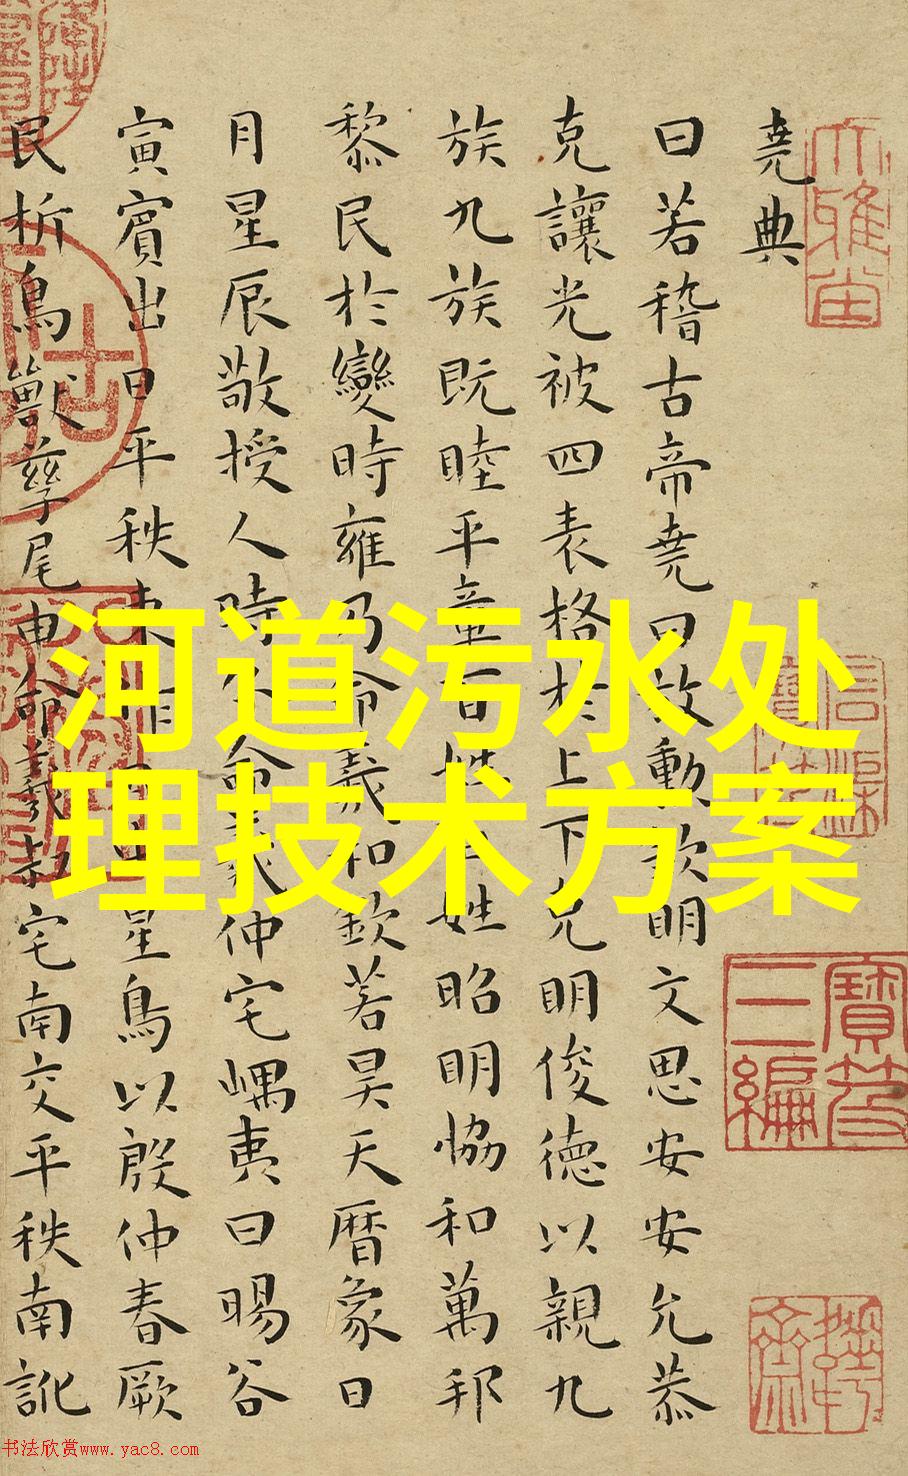 堯典
曰若稽古帝堯曰放勳欽明文思安安允恭
克讓光被四表格於上下克明俊德以親九
族九族既睦平章百姓姓昭明恊和萬邦
黎民於變時雍乃命羲和欽若昊天曆象日
月星辰敬授人時命羲仲宅嵎夷曰暘谷
寅賓出日平秩東作星鳥以殷仲春厥
民析鳥獸孳尾申命羲叔宅南交平秩南訛
河道污水处
理技术方案
寶笈
三編
书法欣赏www.yac8.com